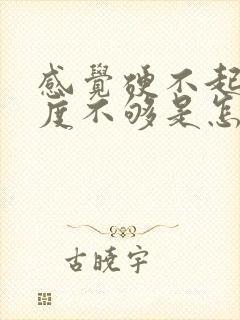 感覺硬不起
度不够是怎
古曉宇